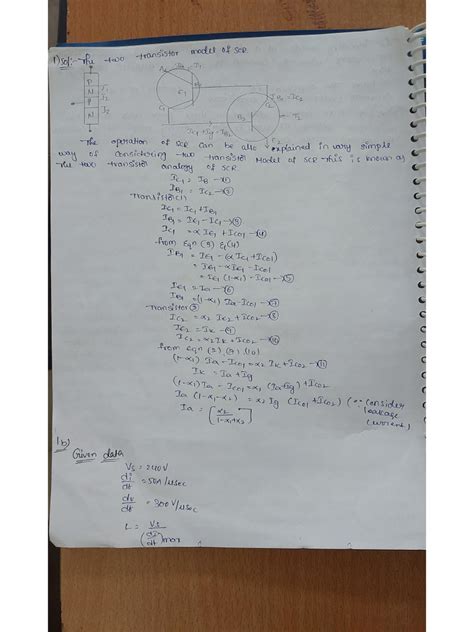 1) sol:- The two transistor model of SCR
P
N
P
N
J1
J2
J3
The operation of SCR can be also explained in very simple
way of considering two transistor Model of SCR this is known as
the two transistor analogy of SCR
Ic1 = IB
IB1 = Ic2 - ③
Transistor(1)
IE1 = Ic1 + IB1
IB1 = IE1 - Ic1 - ③
Ic1 = αIE1 + Ico1 - ④
from Eqn (3) & (4)
IB1 = IE1 - (αIc1 + Ico1)
= IE1 - αIE1 - Ico1
= IE1 (1-α) - Ico1 - ⑤
IE1 = Ia - ⑥
IB1 = (1-α1) Ia - Ico1 - ⑦
Transistor②
Ic2 = α2 IE2 + Ico2 - ⑧
IE2 = Ik - ⑨
Ic2 = α2 Ik + Ico2 - ⑩
from Eqn (2) (7) (10)
(1-α1) Ia - Ico1 = α2 Ik + Ico2 - ⑪
Ik = Ia + Ig
(1-α1) Ia - Ico1 = α1 (Ia+Ig) + Ico2
Ia (1-α1-α2) = α2 Ig (Ico1 + Ico2) (∵ consider
leakage
current)
Ia = [α2 / 1-α1+α2]
1b)
Given data
Vs = 240V
di/dt = 50A/μsec
dv/dt = 300V/μsec
L = Vs / (di/dt)max